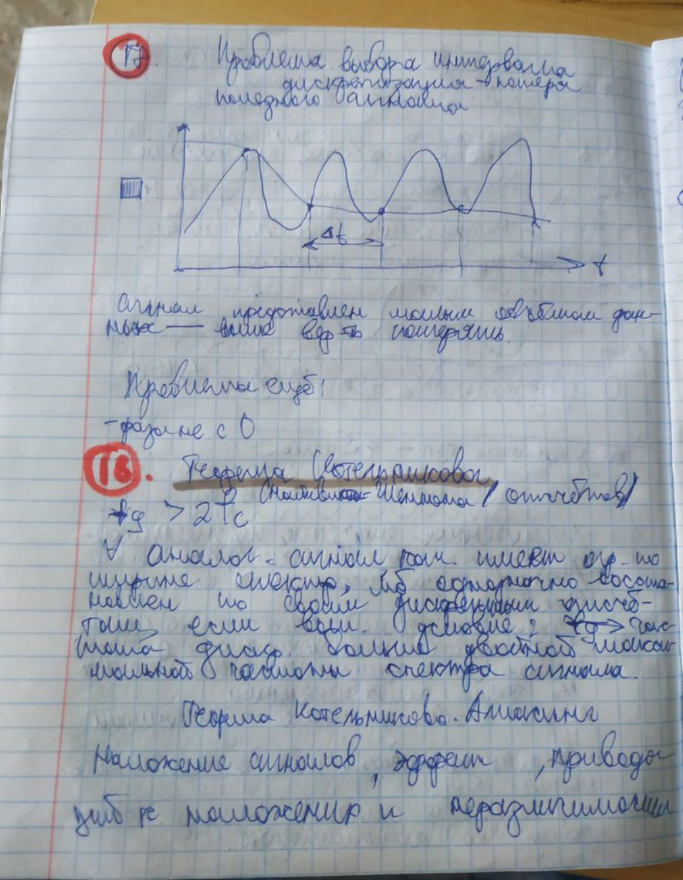 17. Проблема выбора интервала
дискретизации - потеря
полезного сигнала
Δt
t
Сигнал представлен малым объёмом дан-
ных —
потерять.
Проблемы ещё:
- фаза не с 0
18. Теорема Котельникова
Шеннона / отсчётов)
fд > 2 fc
∀ аналог. сигнал кот. имеет огр-по
ширине спектр, мб однозначно восста-
новлен по своим дискретным отсчё-
там, если вып. условие: fд → час-
тота дискр. больше двойной макси-
мальной частоты спектра сигнала.
Теорема Котельникова. Алиасинг
Наложение сигналов, эффект, приводя-
щий к наложению и неразличимости